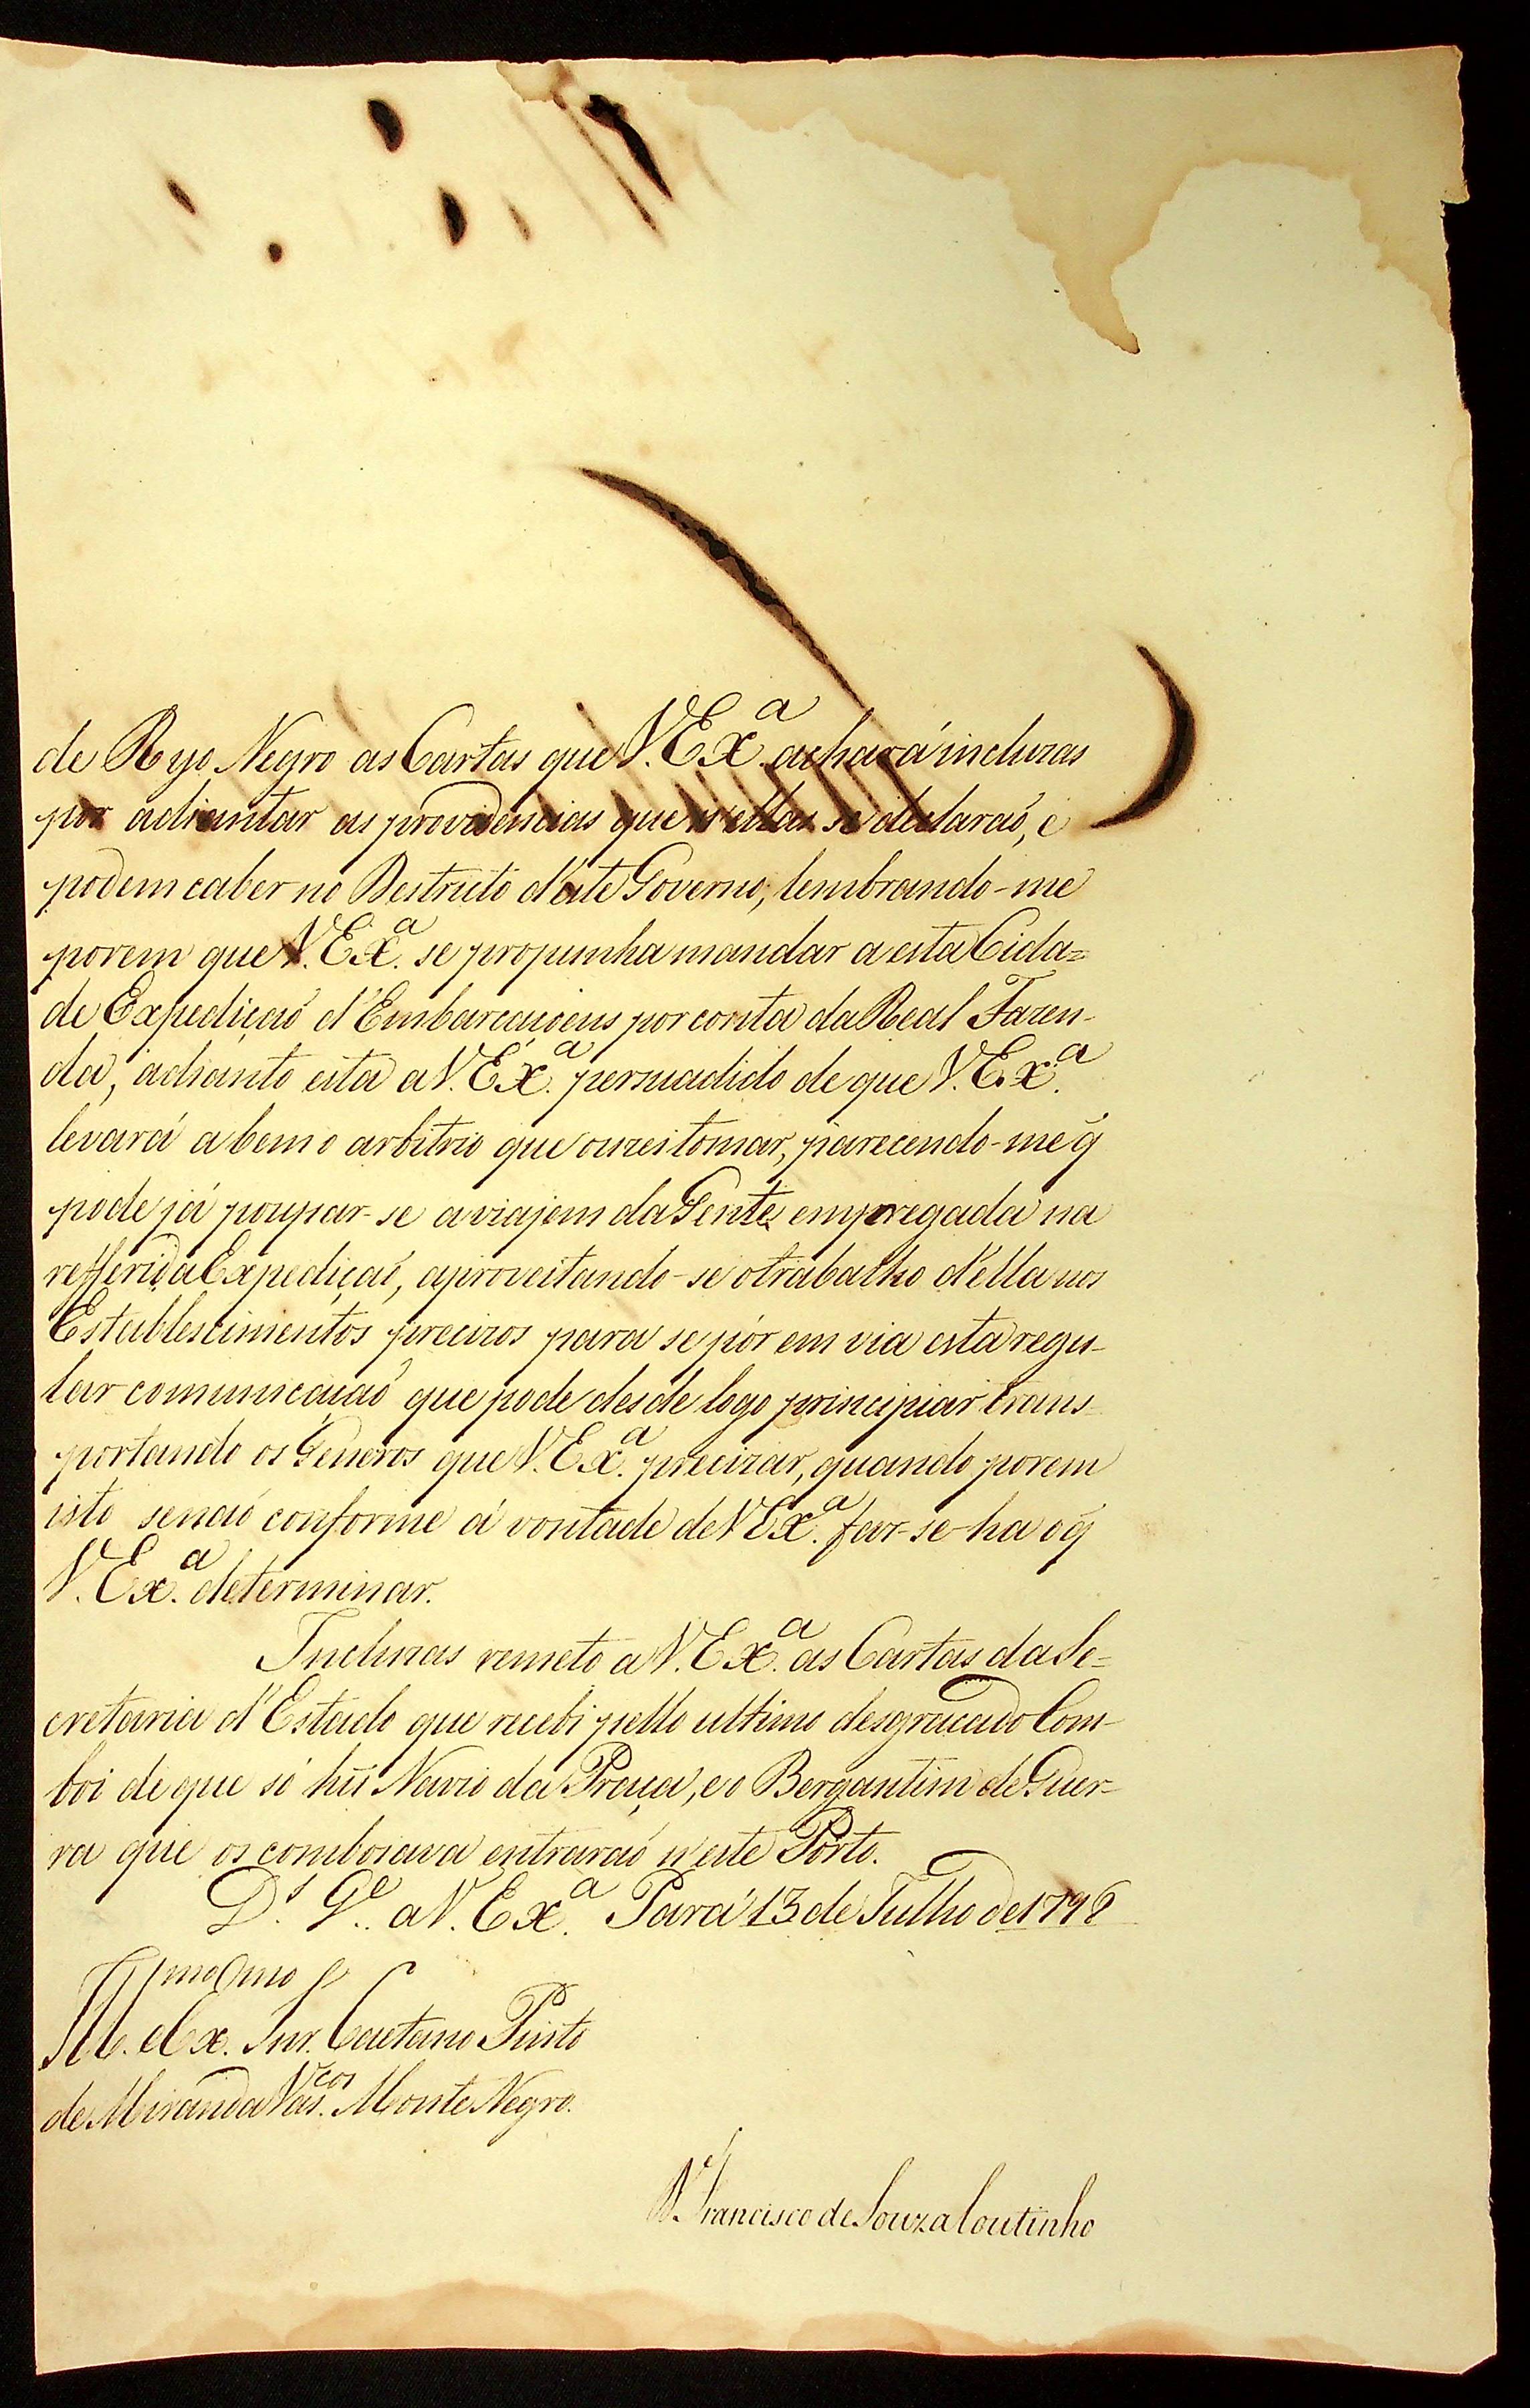 de Ryo Negro as Cartas que V. Ex.ª achará incluzas
por adiantar as providencias que n'ellas se declaraó, e
podem caber no Destricto d'este Governo, lembrando-me
porem que V. Ex.ª se propunha mandar a esta Cida=
de Expediçaó d'Embarcaçoens por conta da Real Fazen-
da, adianto esta a V. Ex.ª persuadido de que V. Ex.ª
levará a bem o arbitrio que ouzei tomar, parecendo-me q̃
pode já poupar-se a viajem da Gente empregada na
refferida Expediçaó, aproveitando-se o trabalho d'ella nos
Establescimentos precizos para se pór em via esta regu-
lar comunicaçaó que pode desde logo principiar trans-
portando os Generos que V. Ex.ª precizar, quando porem
isto senaó conforme á vontade de V Ex.ª far-se-ha o q̃
V. Ex.ª determinar.
Incluzas remeto a V. Ex.ª as Cartas da Se=
cretaria d'Estado que recebi pello ultimo desgraçado Com-
boi de que só hũ Navio da Praça, e o Bergantim de Guer-
ra que os comboiava entraraó n'este Porto.
D.s G.e a V. Ex.ª Pará 13 de Julho de 1798
Ill.mo e Ex.mo Snr. Caetano Pinto
de Miranda Vas.cos Monte Negro.
D. Francisco de Souza Coutinho